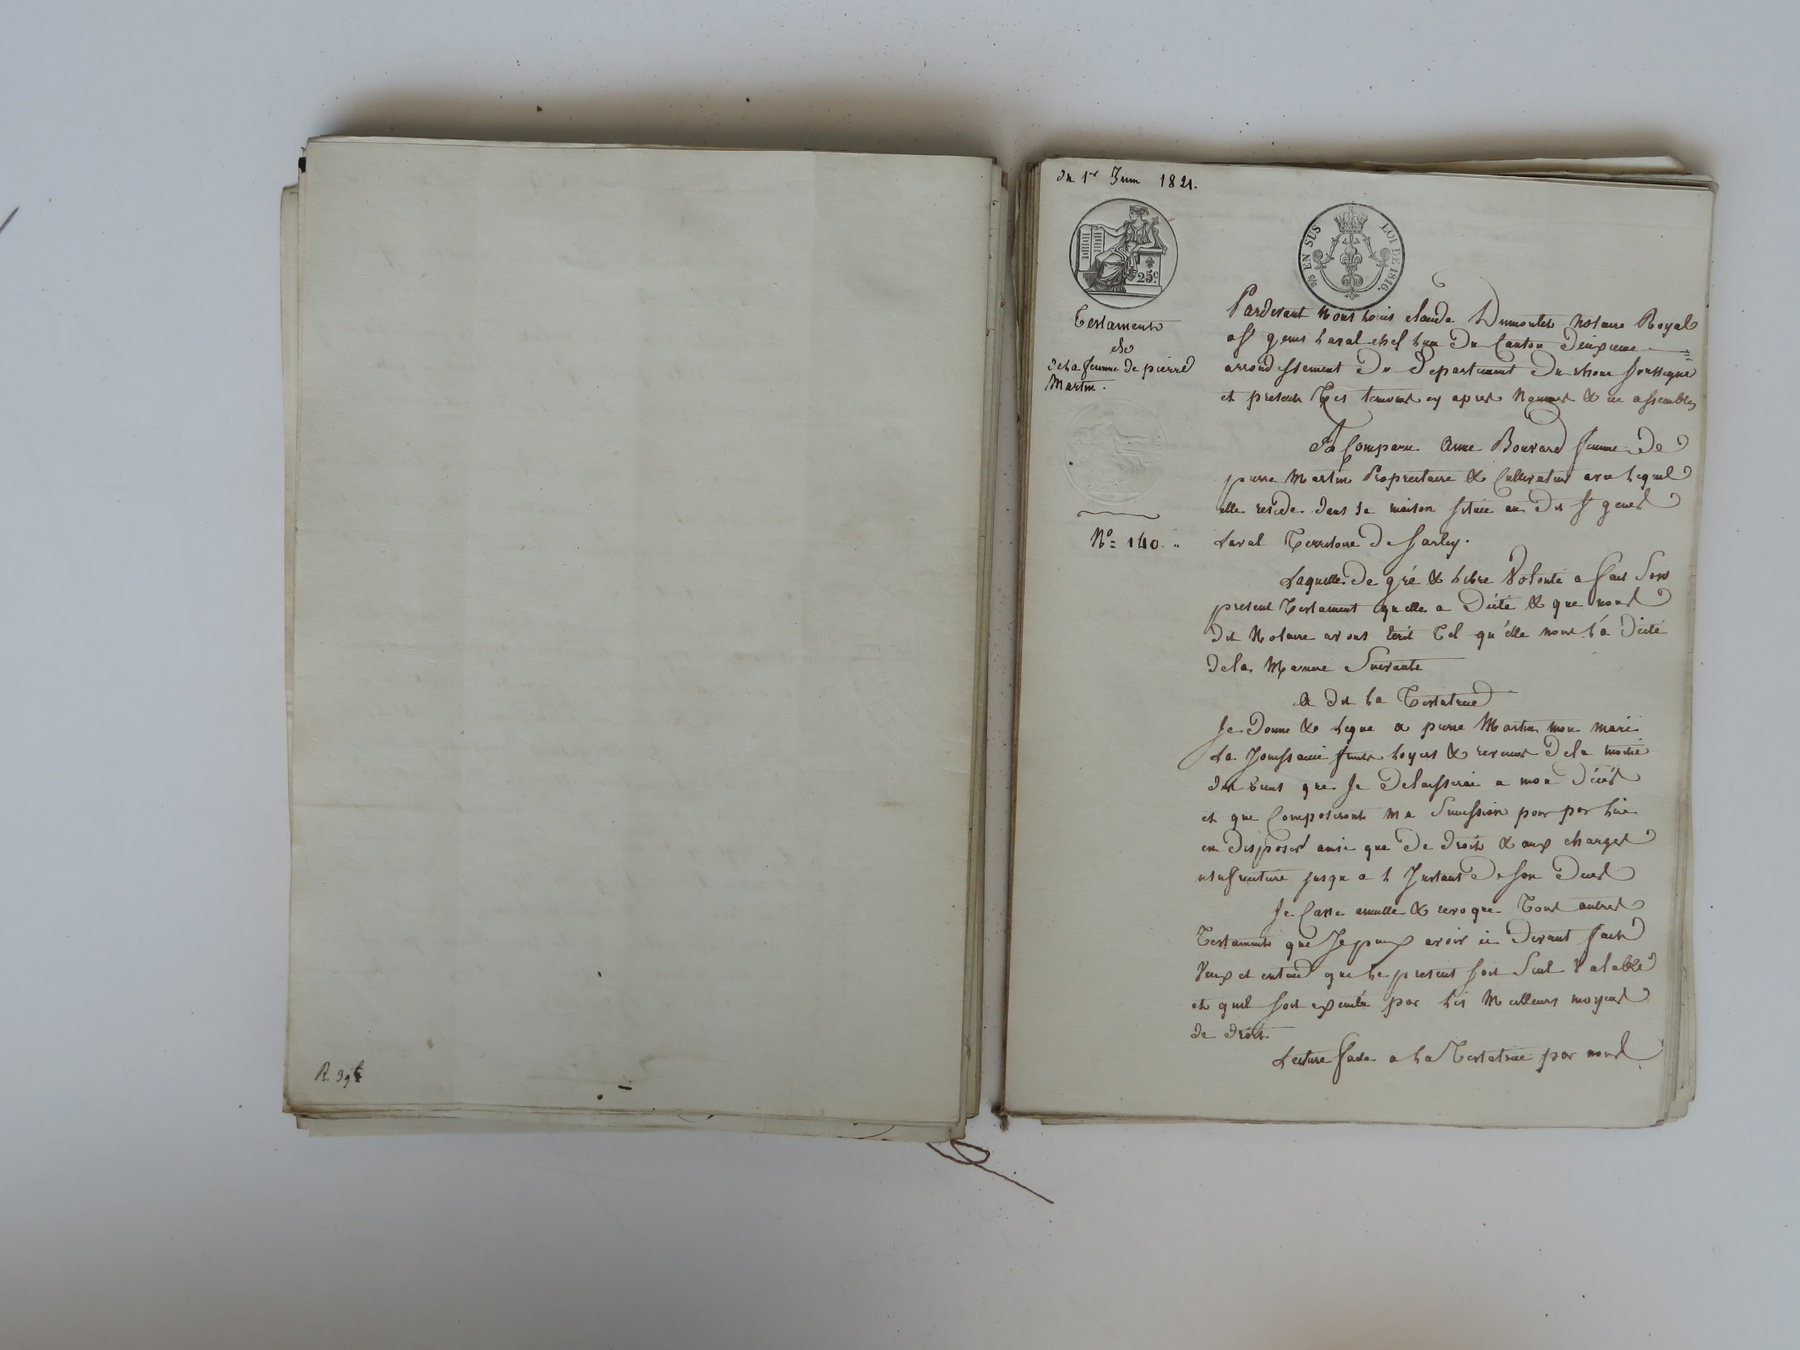 R. 39
du 1er Juin 1821.
25c.
¾ EN SUS LOI DE 1816.
Testament
de
de La femme de pierre
Martin.
No= 140.
Pardevant Nous Louis claude Dumoulin Notaire Royal
a St genis Laval chef Lieu du Canton deuxieme
arrondissement du departement du rhone soussigné
et presents Les temoins cy apres Nommés & ici assemblés
A Comparu Anne Bouvard femme de
pierre Martin Proprietaire & Cultivateur avec lequel
elle reside dans sa maison située au dit St genis
Laval Territoire de sarley.
Laquelle de gré & Libre Volonté a fait son
present Testament quelle a dicté & que nous
dit Notaire avons Ecrit Tel qu'elle nous l'a dicté
de la Maniere Suivante
A dit La Testatrice
Je donne & Legue a pierre Martin mon mari
La Jouissance fruits Loyers & revenus de la moitié
des biens que Je delaisserai a mon décés
et que Composeront Ma Succession pour par Lui
en disposer ainsi que de droit & aux charges
usufruiture jusqu a L Instant de son deces
Je Casse annulle & revoque Tous autres
Testaments que Je puis avoir ci devant faits
Veux et entend que Le present soit Seul Valable
et quil soit executé par Les Meilleurs moyens
de droit.
Lecture faite a La Testatrice par nous